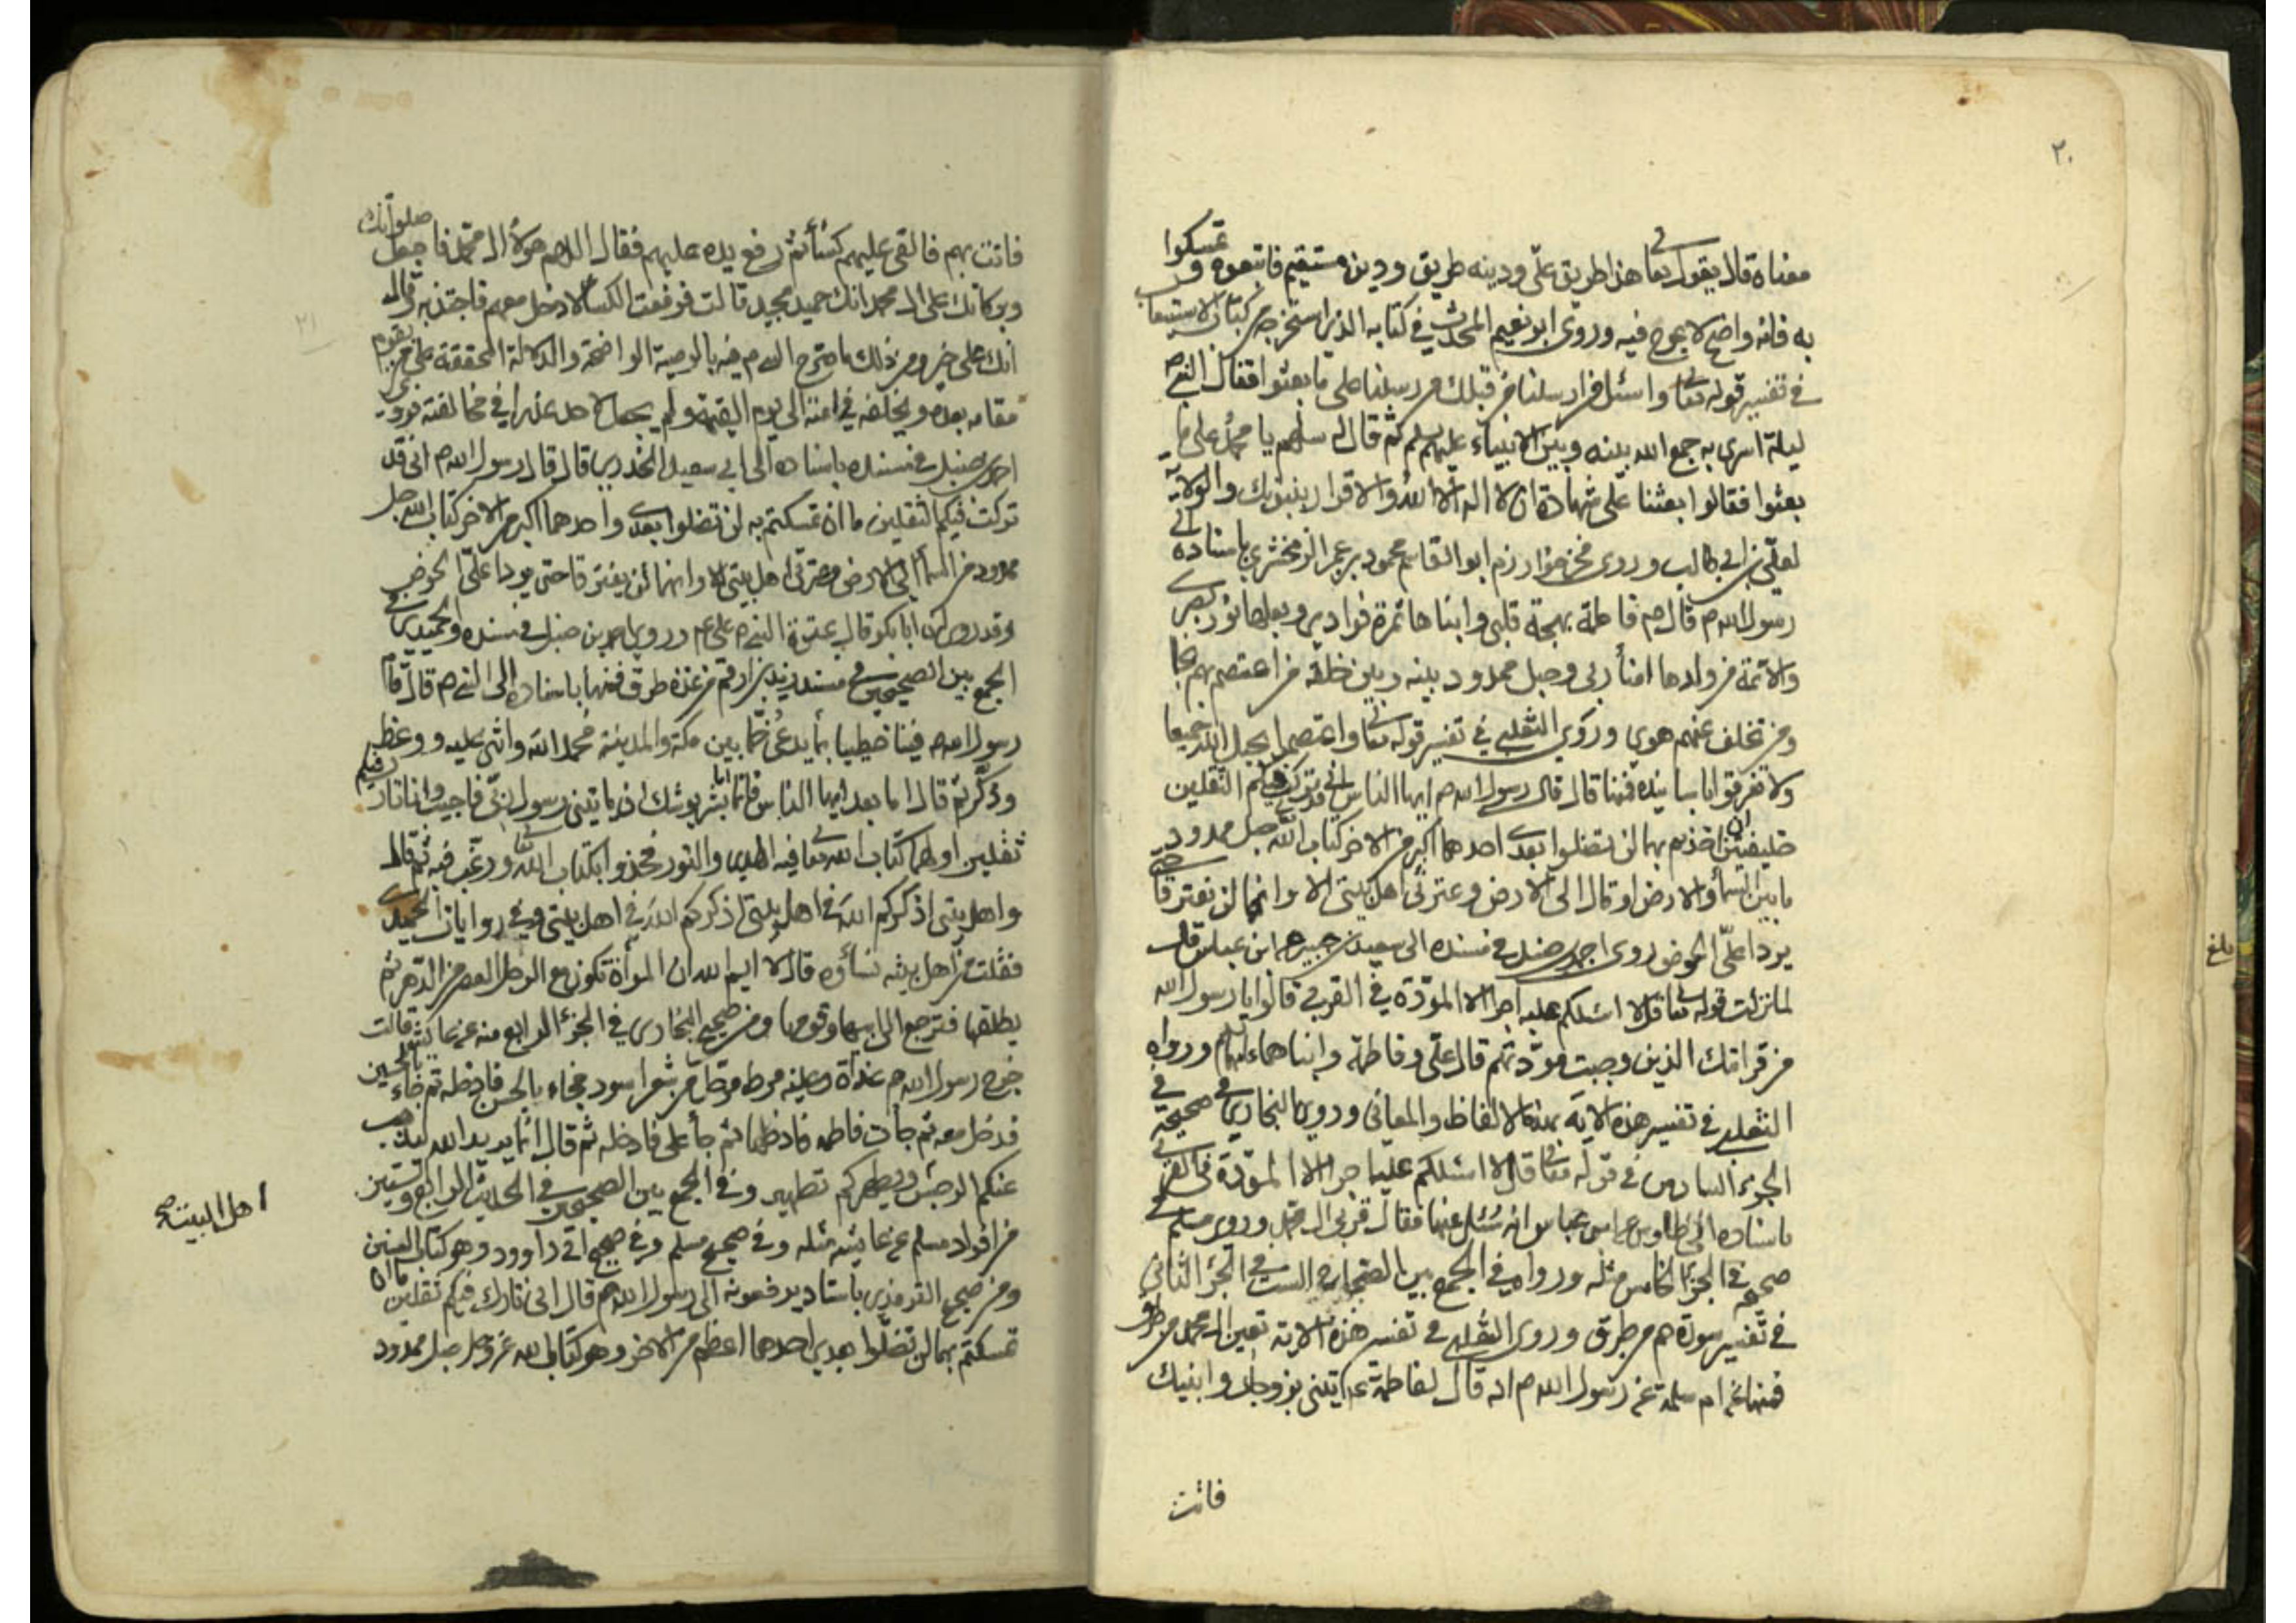 ٢٠
معناه قال يقول تعا هذا طريق علي ودينه طريق ودين مستقيم فاتبعوه وتمسكوا
به فانه واضح لا عوج فيه وروى ابو نعيم المحدث في كتابه الذي استخرجه من كتاب الاستيعاب
في تفسير قوله تعا واسئل من ارسلنا من قبلك من رسلنا على ما بعثوا فقال النبي ص
ليلة اسرى به جمع الله بينه وبين الانبياء عليهم ثم قال له سلهم يا محمد على ما
بعثوا فقالوا بعثنا على شهادة ان لا اله الا الله والاقرار بنبوتك والولاية
لعلي بن ابي طالب وروى فخر خوارزم ابو القاسم محمود بن عمر الزمخشري باسناده الى
رسول الله ص قال فاطمة بهجة قلبي وابناها ثمرة فوادي وبعلها نور بصري
والائمة من ولدها امناء ربي وحبل ممدود بينه وبين خلقه من اعتصم بهم نجا
ومن تخلف عنهم هوى وروى الثعلبي في تفسير قوله تعا واعتصموا بحبل الله جميعا
ولا تفرقوا باسانيده فمنها قال قال رسول الله ص ايها الناس اني قد تركت فيكم الثقلين
خليفتين ان اخذتم بهما لن تضلوا بعدي احدهما اكبر من الاخر كتاب الله حبل ممدود
ما بين السماء والارض او قال الى الارض وعترتي اهل بيتي الا وانهما لن يفترقا حتى
يردا علي الحوض روى احمد بن حنبل في مسنده الى سعيد بن جبير عن ابن عباس قال
لما نزلت قوله تعا قل لا اسئلكم عليه اجرا الا المودة في القربى قالوا يا رسول الله
من قرابتك الذين وجبت مودتهم قال علي وفاطمة وابناهما عليهم ورواه
الثعلبي في تفسير هذه الاية بهذه الالفاظ والمعاني وروى البخاري في صحيحه في
الجزء السادس في قوله تعا قل لا اسئلكم عليه اجرا الا المودة في القربى
باسناده الى طاوس عن ابن عباس انه سئل عنها فقال قربى ال محمد وروى مسلم في
صحيحه في الجزء الخامس مثله ورواه في الجمع بين الصحاح الستة في الجزء الثاني
في تفسير سورة حم من طرق وروى الثعلبي في تفسير هذه الاية تعيين ال محمد من طرق
فمنها عن ام سلمة عن رسول الله ص انه قال لفاطمة ع ايتيني بزوجك وابنيك
فاتت
بلغ
٢١
فاتت بهم فالقى عليهم كساء ثم رفع يده عليهم فقال اللهم هؤلاء ال محمد فاجعل صلواتك
وبركاتك على ال محمد انك حميد مجيد قالت فرفعت الكساء لادخل معهم فاجتذبه وقال
انك على خير ومن ذلك ما صرح فيه بالوصية الواضحة والدلالة المحققة على من يقوم
مقامه بعده ويخلفه في امته الى يوم القيمة ولم يجعل لاحد عذرا في مخالفته فروى
احمد بن حنبل في مسنده باسناده الى ابي سعيد الخدري قال قال رسول الله ص اني قد
تركت فيكم الثقلين ما ان تمسكتم به لن تضلوا بعدي واحدهما اكبر من الاخر كتاب الله حبل
ممدود من السماء الى الارض وعترتي اهل بيتي الا وانهما لن يفترقا حتى يردا علي الحوض
وقد روى ان ابا بكر قال عترة النبي ص علي ع وروى احمد بن حنبل في مسنده والحميدي في
الجمع بين الصحيحين في مسند زيد بن ارقم من عدة طرق فمنها باسناده الى النبي ص قال قام
رسول الله ص فينا خطيبا بماء يدعى خما بين مكة والمدينة فحمد الله واثنى عليه ووعظ
وذكر ثم قال اما بعد ايها الناس فانما انا بشر يوشك ان ياتيني رسول ربي فاجيب وانا تارك فيكم
ثقلين اولهما كتاب الله تعا فيه الهدى والنور فخذوا بكتاب الله تعا ورغب فيه ثم قال
واهل بيتي اذكركم الله في اهل بيتي اذكركم الله في اهل بيتي وفي روايات الحميدي
فقلت من اهل بيته نساؤه قال لا ايم الله ان المرأة تكون مع الرجل العصر من الدهر ثم
يطلقها فترجع الى ابيها وقومها ومن صحيح البخاري في الجزء الرابع منه عن عايشة قالت
خرج رسول الله ص غداة وعليه مرط مرحل من شعر اسود فجاء بالحسن فادخله ثم جاء بالحسين
فدخل معه ثم جأت فاطمه فادخلها ثم جأ علي فادخله ثم قال انما يريد الله ليذهب
عنكم الرجس ويطهركم تطهيرا وفي الجمع بين الصحيحين في الحديث الرابع وستين
اهل البيت صح
من افراد مسلم عن عايشه مثله وفي صحيح مسلم وفي صحيح ابي داوود وهو كتاب السنن
ومن صحيح الترمذي باسناد يرفعونه الى رسول الله ص قال اني تارك فيكم ثقلين ما ان
تمسكتم بهما لن تضلوا بعدي احدهما اعظم من الاخر وهو كتاب الله عز وجل حبل ممدود